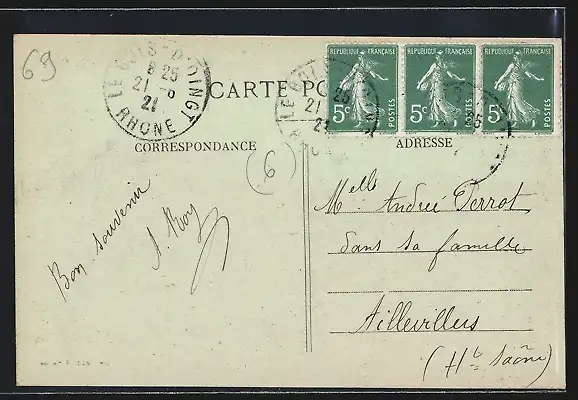 69
LE BOIS-D'OINGT
8 25
21 -6
21
RHONE
CARTE PO
RÉPUBLIQUE FRANÇAISE
5c
POSTES
RÉPUBLIQUE FRANÇAISE
5c
POSTES
RÉPUBLIQUE FRANÇAISE
5c
POSTES
CORRESPONDANCE
ADRESSE
(6)
Bon souvenir
Melle Andrée Perrot
Dans sa famille
Aillevillers
(Hte Saône)